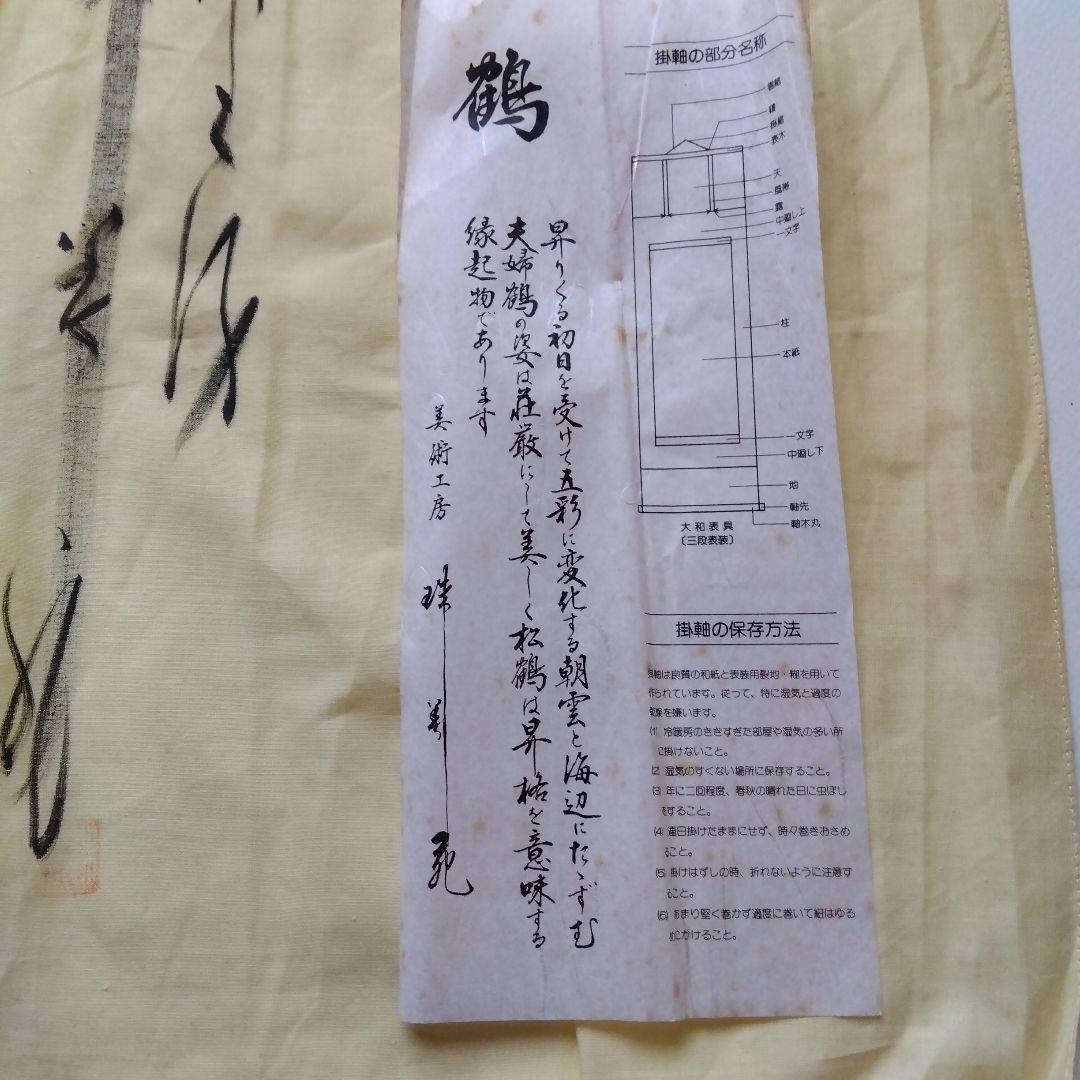 鶴
昇りくる初日を受けて五彩に変化する朝雲と海辺にたゝずむ
夫婦鶴の姿は荘厳にして美しく松鶴は昇格を意味する
縁起物であります
美術工房
珠
苑
掛軸の部分名称
巻緒
鐶
掛緒
表木
天
風帯
露
中廻し上
一文字
柱
本紙
一文字
中廻し下
地
軸先
軸木丸
大和表具
〔三段表装〕
掛軸の保存方法
軸は良質の和紙と表装用裂地・糊を用いて
作られています。従って、特に湿気と過度の
乾燥を嫌います。
(1) 冷暖房のききすぎた部屋や湿気の多い所
に掛けないこと。
(2 湿気のすくない場所に保存すること。
(3 年に二回程度、春秋の晴れた日に虫ぼし
をすること。
(4) 連日掛けたままにせず、時々巻きおさめ
ること。
(5 掛けはずしの時、折れないように注意す
ること。
(6) あまり堅く巻かず適度に巻いて紐はゆる
めにかけること。